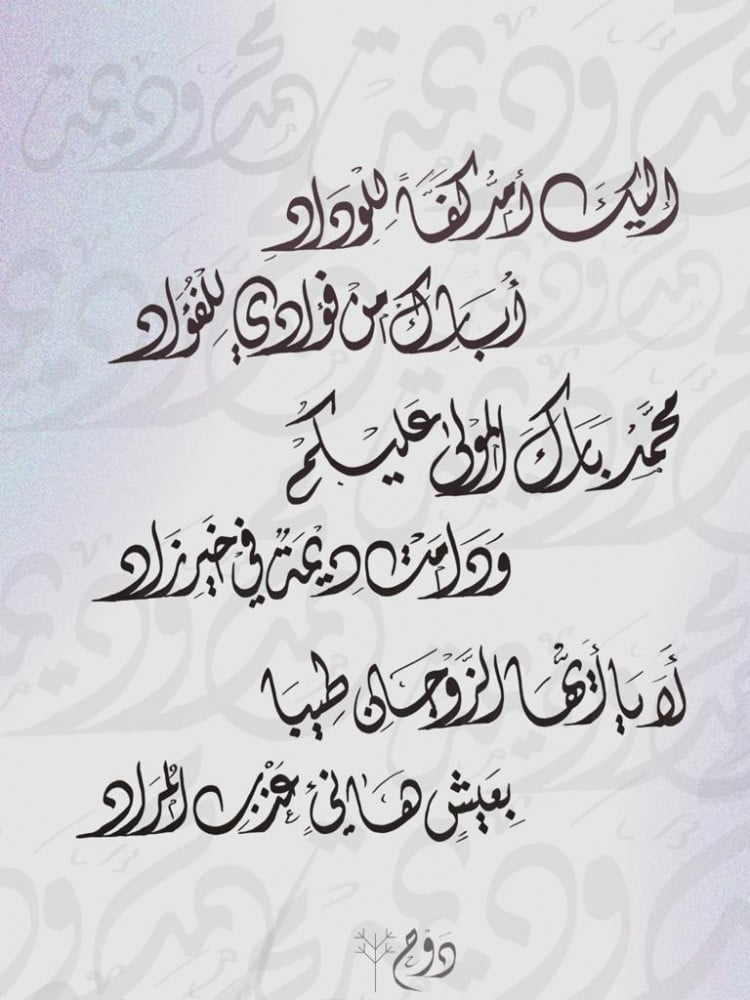 محمد وديمة
إليكَ أمدُّ كفّاً لِلْوِدَادِ
أُبَارِكُ مِنْ فؤادي لِلْفُؤَادِ
محمَّدُ بَارَكَ المولى عَليكُمْ
وَدَامَتْ دِيمَةٌ في خَيرِ زَادِ
أَلَا يَا أيُّهَا الزَّوْجَانِ طِيبَا
بِعَيشٍ هَانئٍ عَذْبِ المُرَادِ
دَوْح